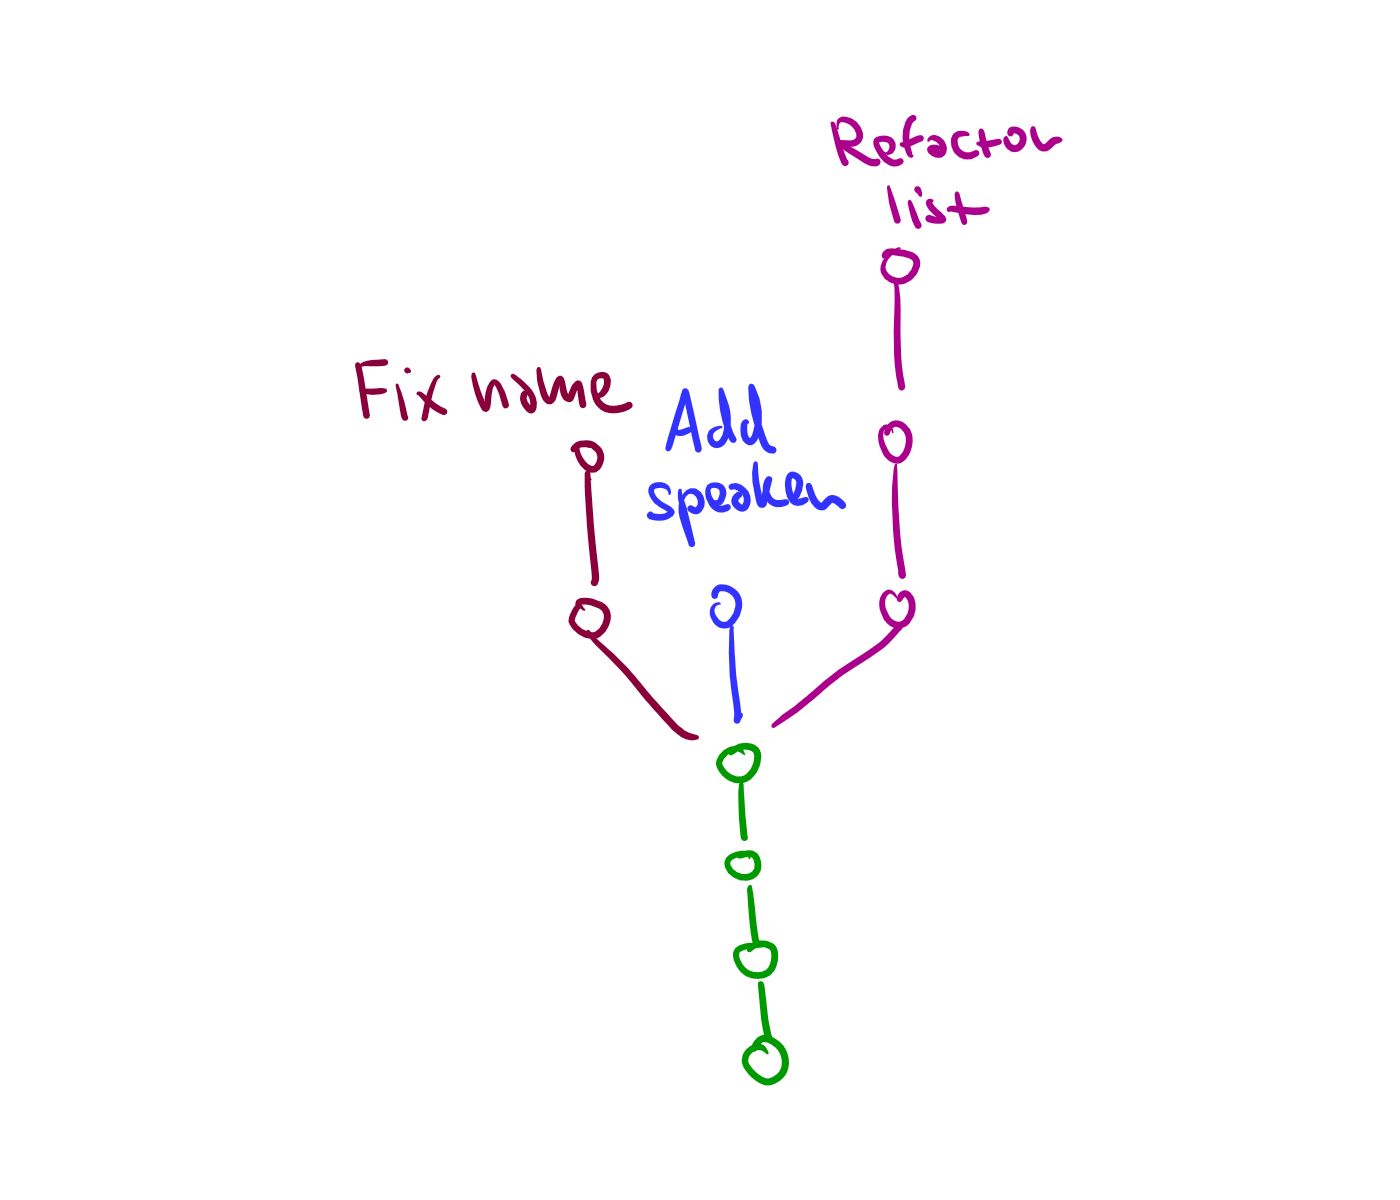 Refactor
list
Fix name
Add
speaker